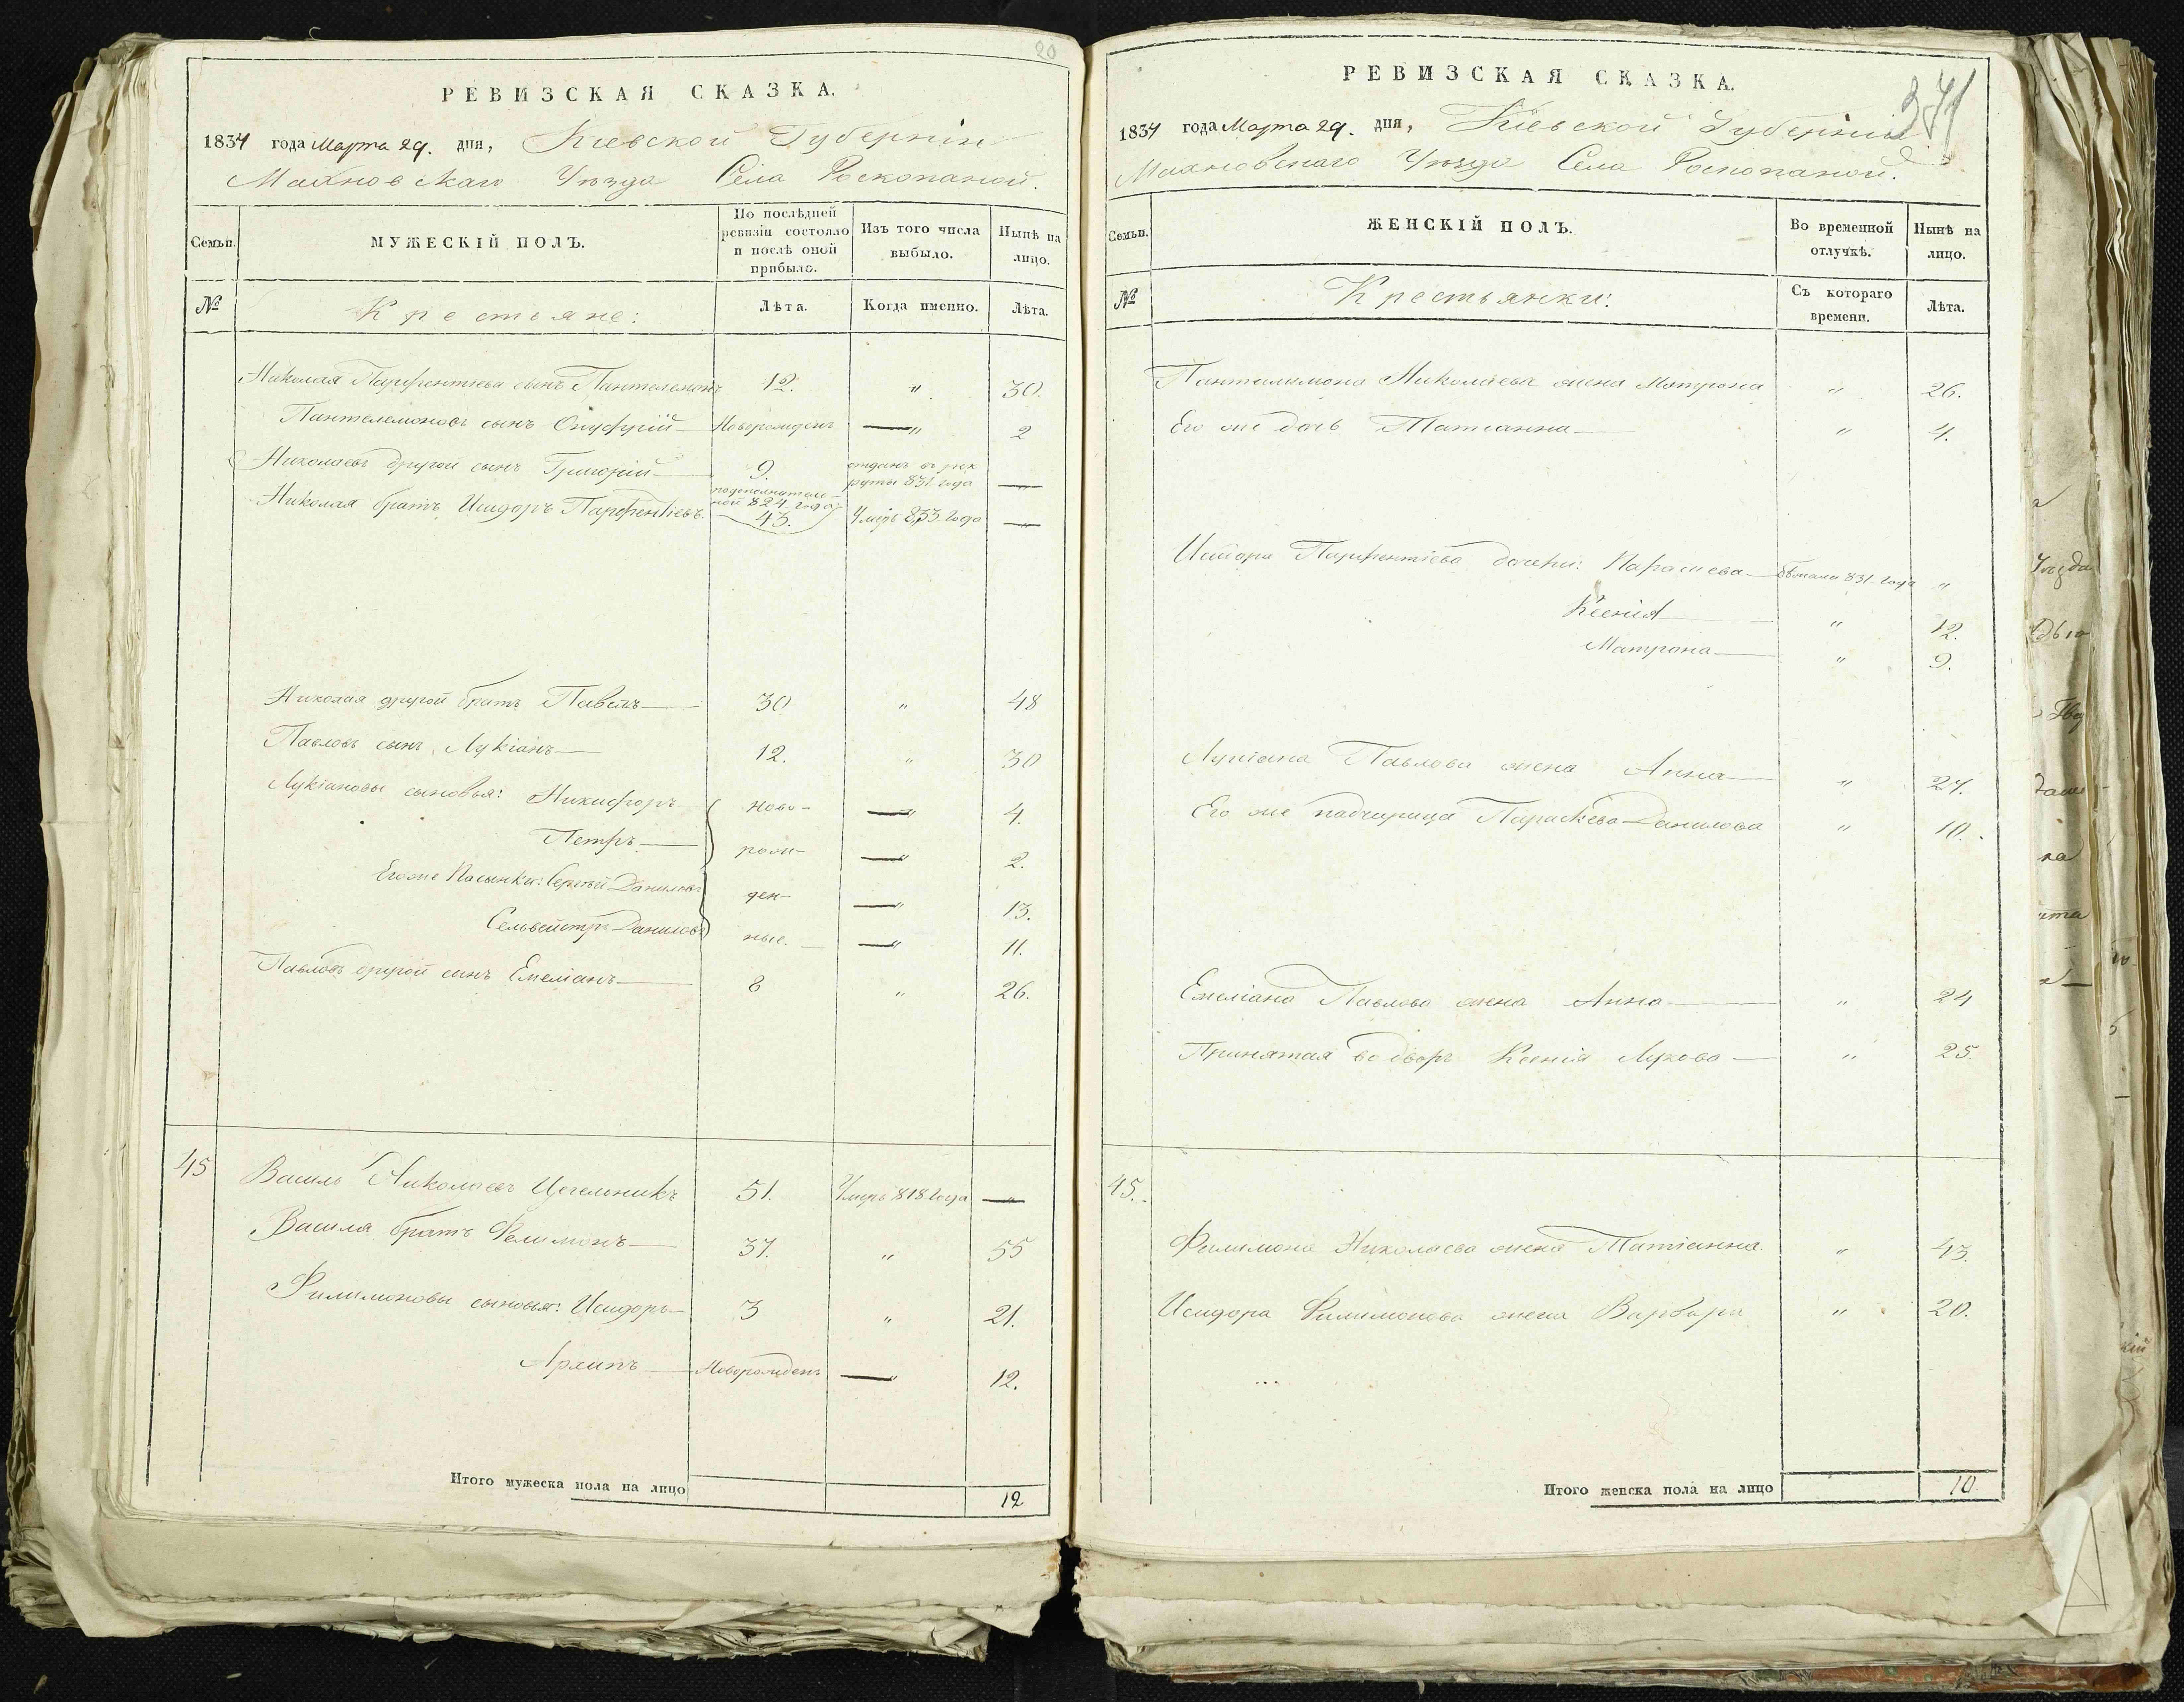 20
РЕВИЗСКАЯ СКАЗКА.
1834 года Марта 29. дня, Кіевской Губерніи
Махновскаго Уѣзда Села Роскопаной.
Семьи.
МУЖЕСКІЙ ПОЛЪ.
По послѣдней ревизіи состояло и послѣ оной прибыло.
Изъ того числа выбыло.
Нынѣ на лицо.
№
Крестьяне:
Лѣта.
Когда именно.
Лѣта.
Николая Парфентіева сынъ Пантелемонъ 12. " 30.
Пантелемоновъ сынъ Онуфрій Новорожденъ — " 2
Николаевъ другой сынъ Григорій 9. отданъ въ рекруты 831 года —
Николая братъ Исидоръ Парфентіевъ. по дополнительной 824 года 43. Умеръ 833 года —
Николая другой братъ Павелъ — 30 " 48
Павловъ сынъ Лукіанъ — 12. " 30
Лукіановы сыновья: Никифоръ ново- — " 4.
Петръ — рож- — " 2.
Его же Пасынки: Сергѣй Даниловъ ден- — " 13.
Сельвейстръ Даниловъ ные. — " 11.
Павловъ другой сынъ Емеліанъ — 8 " 26.
45 Василь Николаевъ Цегельникъ 51. Умеръ 818 года —
Василя братъ Филимонъ — 37. " 55
Филимоновы сыновья: Исидоръ — 3 " 21.
Архипъ — Новорожденъ — " 12.
Итого мужеска пола на лицо 12
371
РЕВИЗСКАЯ СКАЗКА.
1834 года Марта 29. дня, Кіевской Губерніи
Махновскаго Уѣзда Села Роскопаной.
Семьи.
ЖЕНСКІЙ ПОЛЪ.
Во временной отлучкѣ.
Нынѣ на лицо.
№
Крестьянки:
Съ котораго времени.
Лѣта.
Пантелемона Николаева жена Матрона " 26.
Его же дочь Татіанна — " 4.
Исидора Парфентіева дочери: Параскева — бѣжала 831 года "
Ксенія " 12.
Матрона — " 9.
Лукіана Павлова жена Анна — " 27.
Его же падчерица Параскева Данилова " 10.
Емеліана Павлова жена Анна — " 24
Принятая во дворъ Ксенія Лукова — " 25.
45.
Филимона Николаева жена Татіанна. " 43.
Исидора Филимонова жена Варвара " 20.
Итого женска пола на лицо 10.